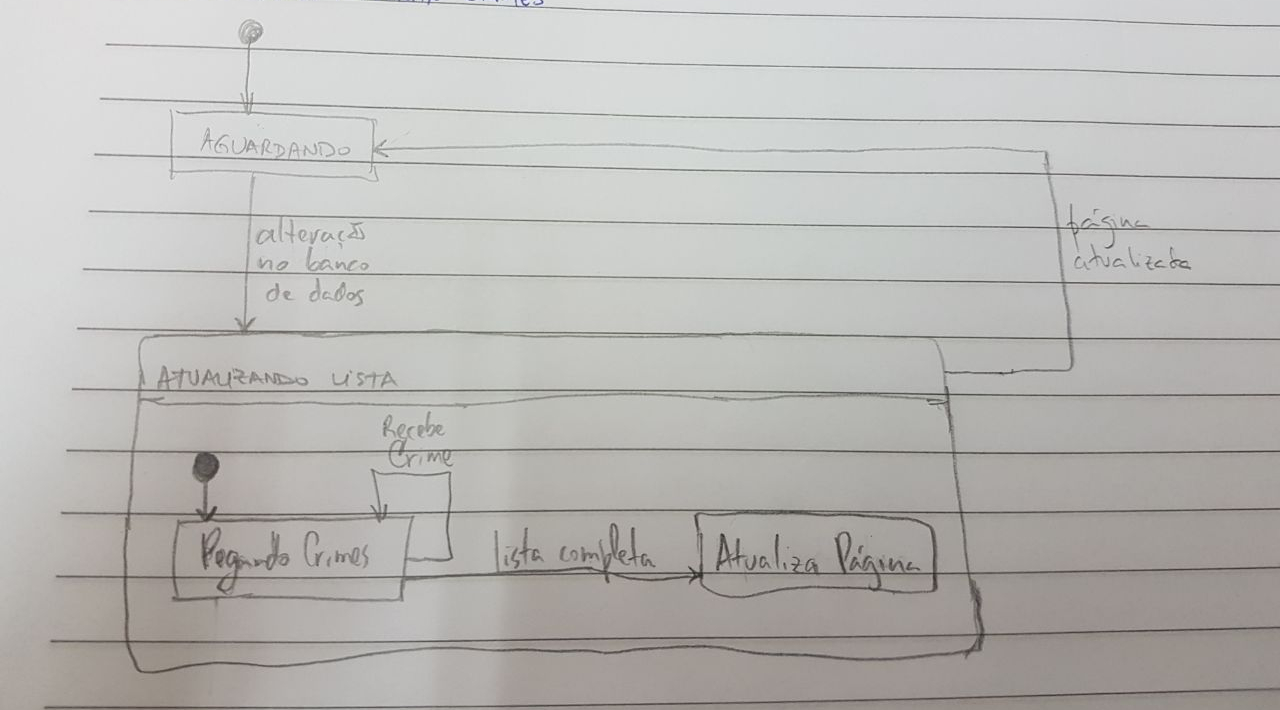 AGUARDANDO
alteração
no banco
de dados
página
atualizada
ATUALIZANDO LISTA
Recebe
Crime
Pegando Crimes
lista completa
Atualiza Página